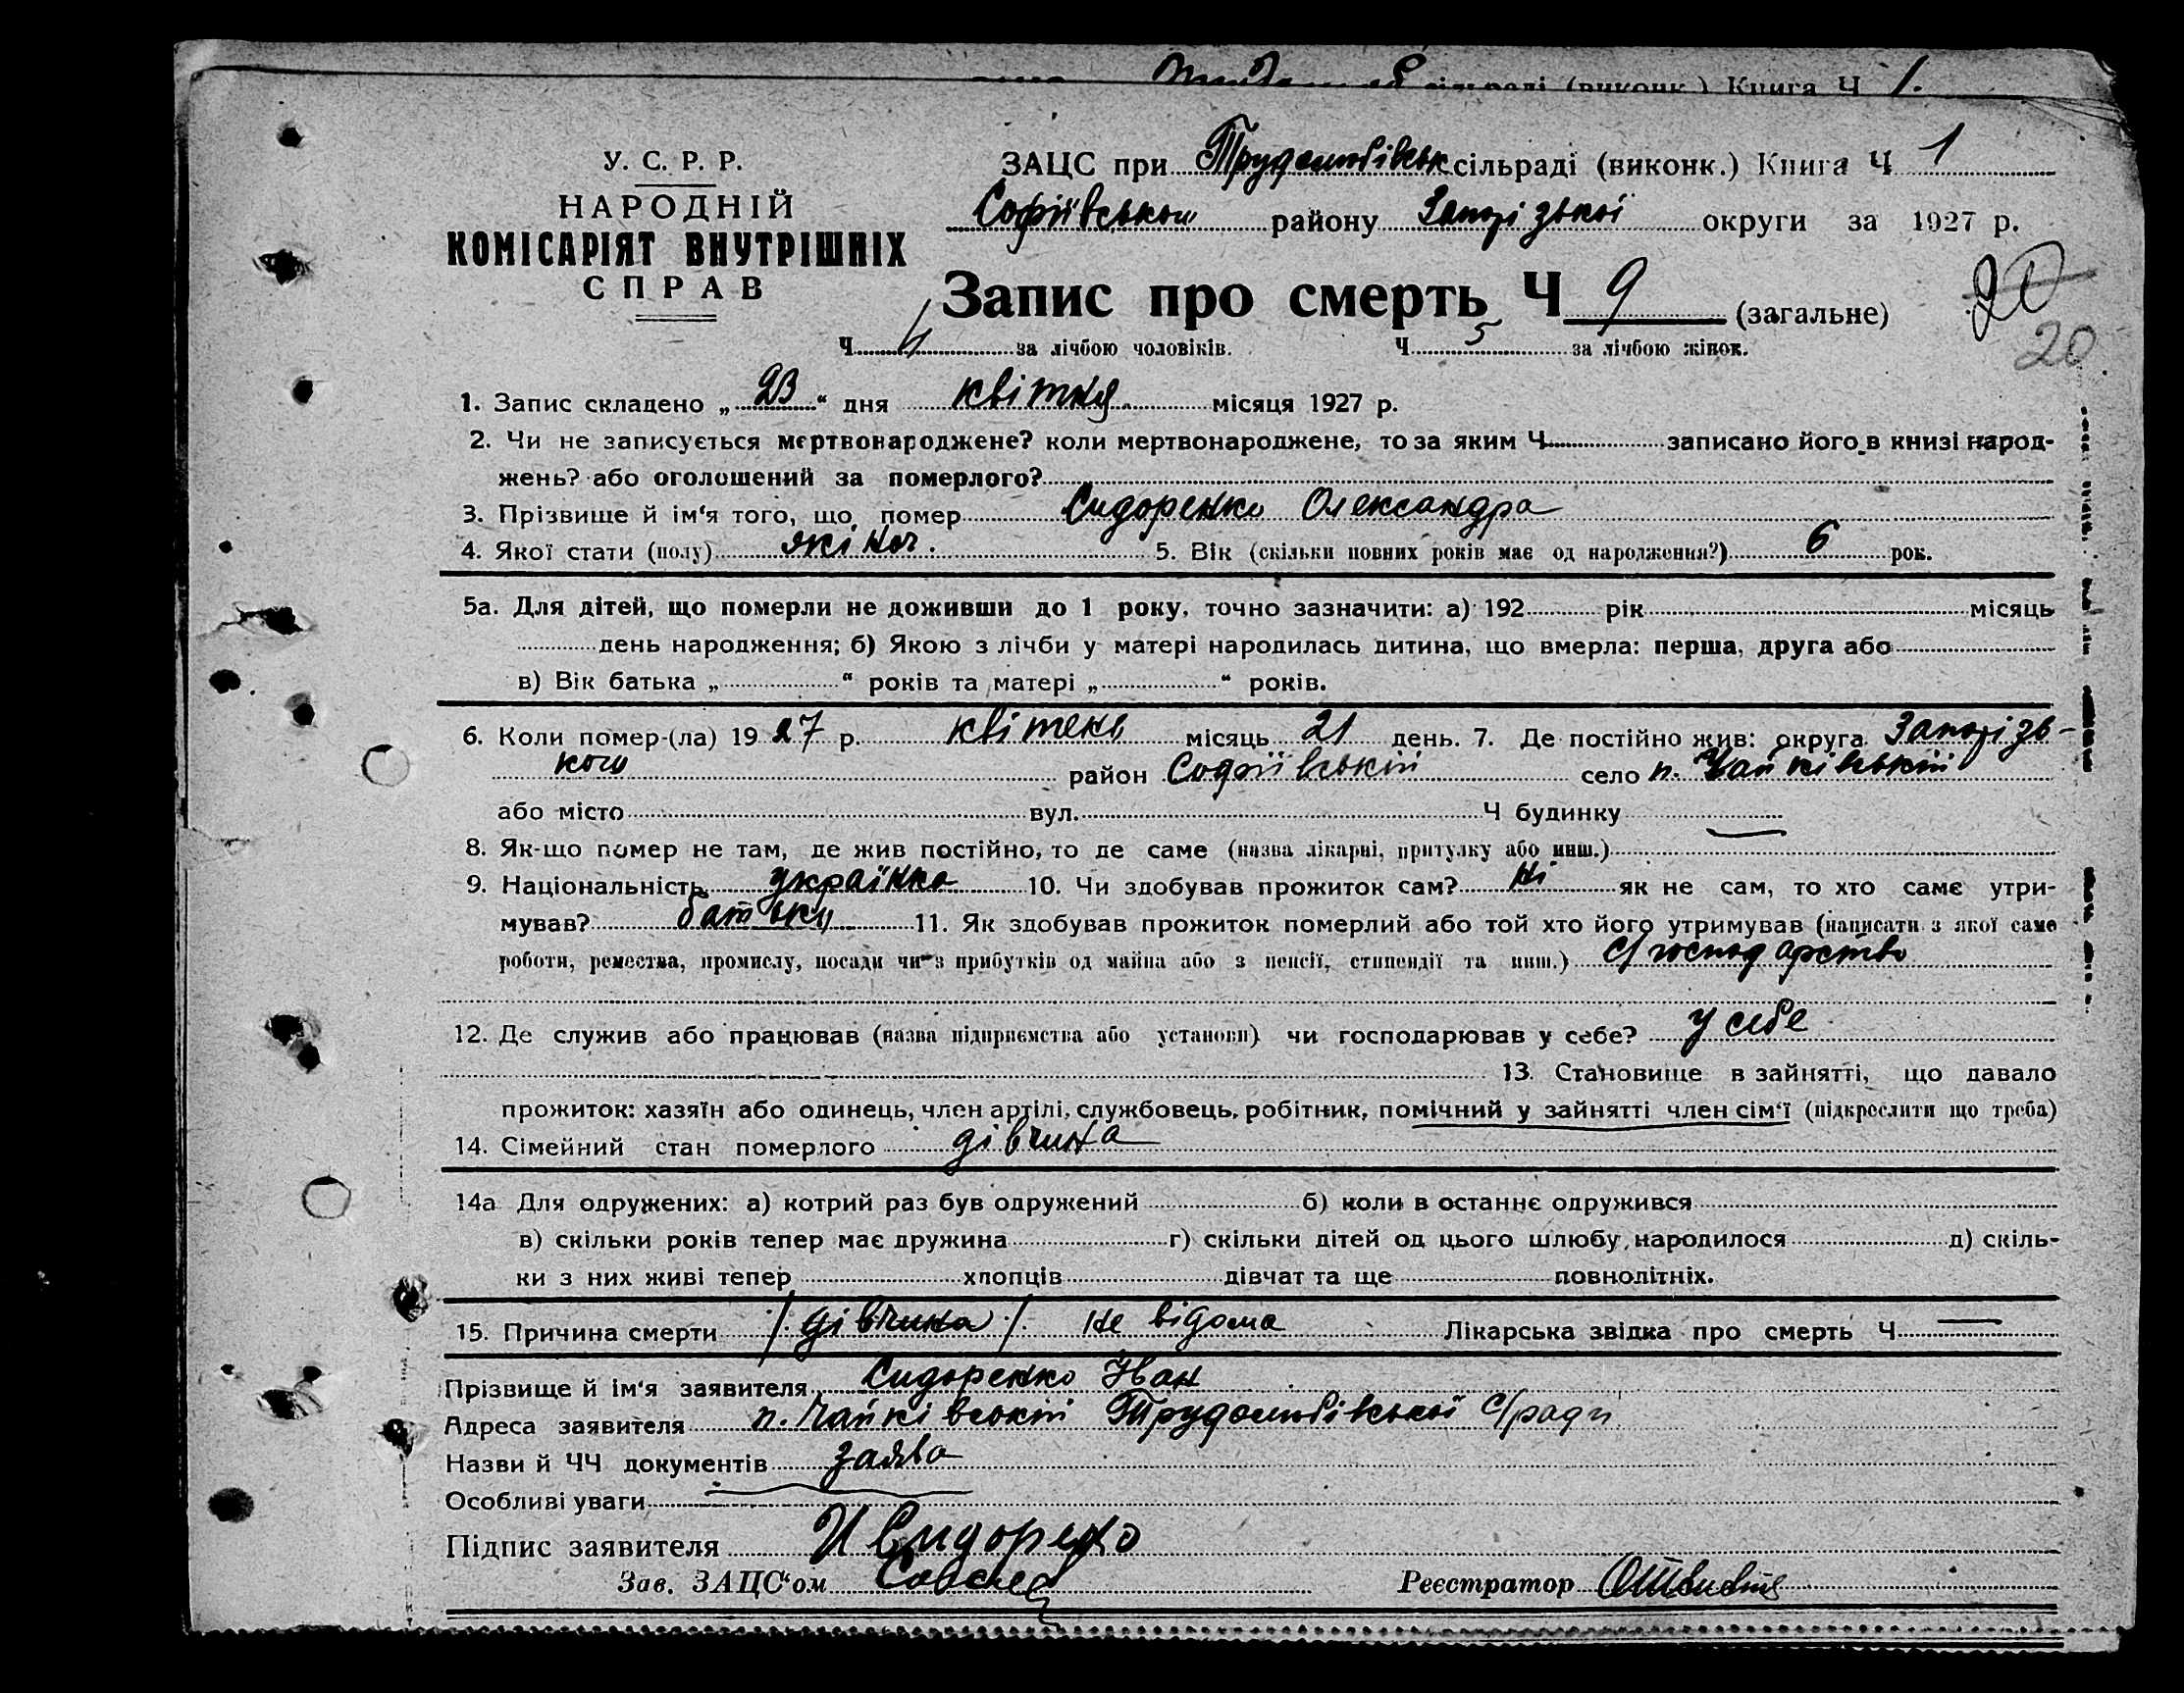 сільраді (виконк.) Книга Ч 1.
У. С. Р. Р.
НАРОДНІЙ
КОМІСАРІЯТ ВНУТРІШНІХ
СПРАВ
ЗАЦС при Трудолюбівськ сільраді (виконк.) Книга Ч 1
Софіївського району Запорізької округи за 1927 р.
Запис про смерть Ч 9 (загальне)
20
20
Ч 4 за лічбою чоловіків. Ч 5 за лічбою жінок.
1. Запис складено „ 23 “ дня квітня місяця 1927 р.
2. Чи не записується мертвонароджене? коли мертвонароджене, то за яким Ч записано його в книзі народ-
жень? або оголошений за померлого?
3. Прізвище й ім'я того, що помер Сидоренко Олександра
4. Якої стати (полу) жіноч. 5. Вік (скільки повних років має од народження?) 6 рок.
5а. Для дітей, що померли не доживши до 1 року, точно зазначити: а) 192 рік місяць
день народження; б) Якою з лічби у матері народилась дитина, що вмерла: перша, друга або
в) Вік батька „ “ років та матері „ “ років.
6. Коли помер-(ла) 19 27 р. квітень місяць 21 день. 7. Де постійно жив: округа Запорізь-
кого район Софіївський село п. Чайківський
або місто вул. Ч будинку
8. Як-що помер не там, де жив постійно, то де саме (назва лікарні, притулку або инш.)
9. Національність українка 10. Чи здобував прожиток сам? ні як не сам, то хто саме утри-
мував? батьки 11. Як здобував прожиток померлий або той хто його утримував (написати з якої саме
роботи, ремества, промислу, посади чи з прибутків од майна або з пенсії, стипендії та инш.) с/господарство
12. Де служив або працював (назва підприємства або установи) чи господарював у себе? у себе
13. Становище в зайнятті, що давало
прожиток: хазяїн або одинець, член артілі, службовець, робітник, помічний у зайнятті член сім'ї (підкреслити що треба)
14. Сімейний стан померлого дівчина
14а Для одружених: а) котрий раз був одружений б) коли в останнє одружився
в) скільки років тепер має дружина г) скільки дітей од цього шлюбу народилося д) скіль-
ки з них живі тепер хлопців дівчат та ще повнолітніх.
15. Причина смерти /дівчина/ не відома Лікарська звідка про смерть Ч —
Прізвище й ім'я заявителя Сидоренко Іван
Адреса заявителя п. Чайківський Трудолюбівської с/ради
Назви й ЧЧ документів заява
Особливі уваги
Підпис заявителя И Сидоренко
Зав. ЗАЦС'ом Реєстратор